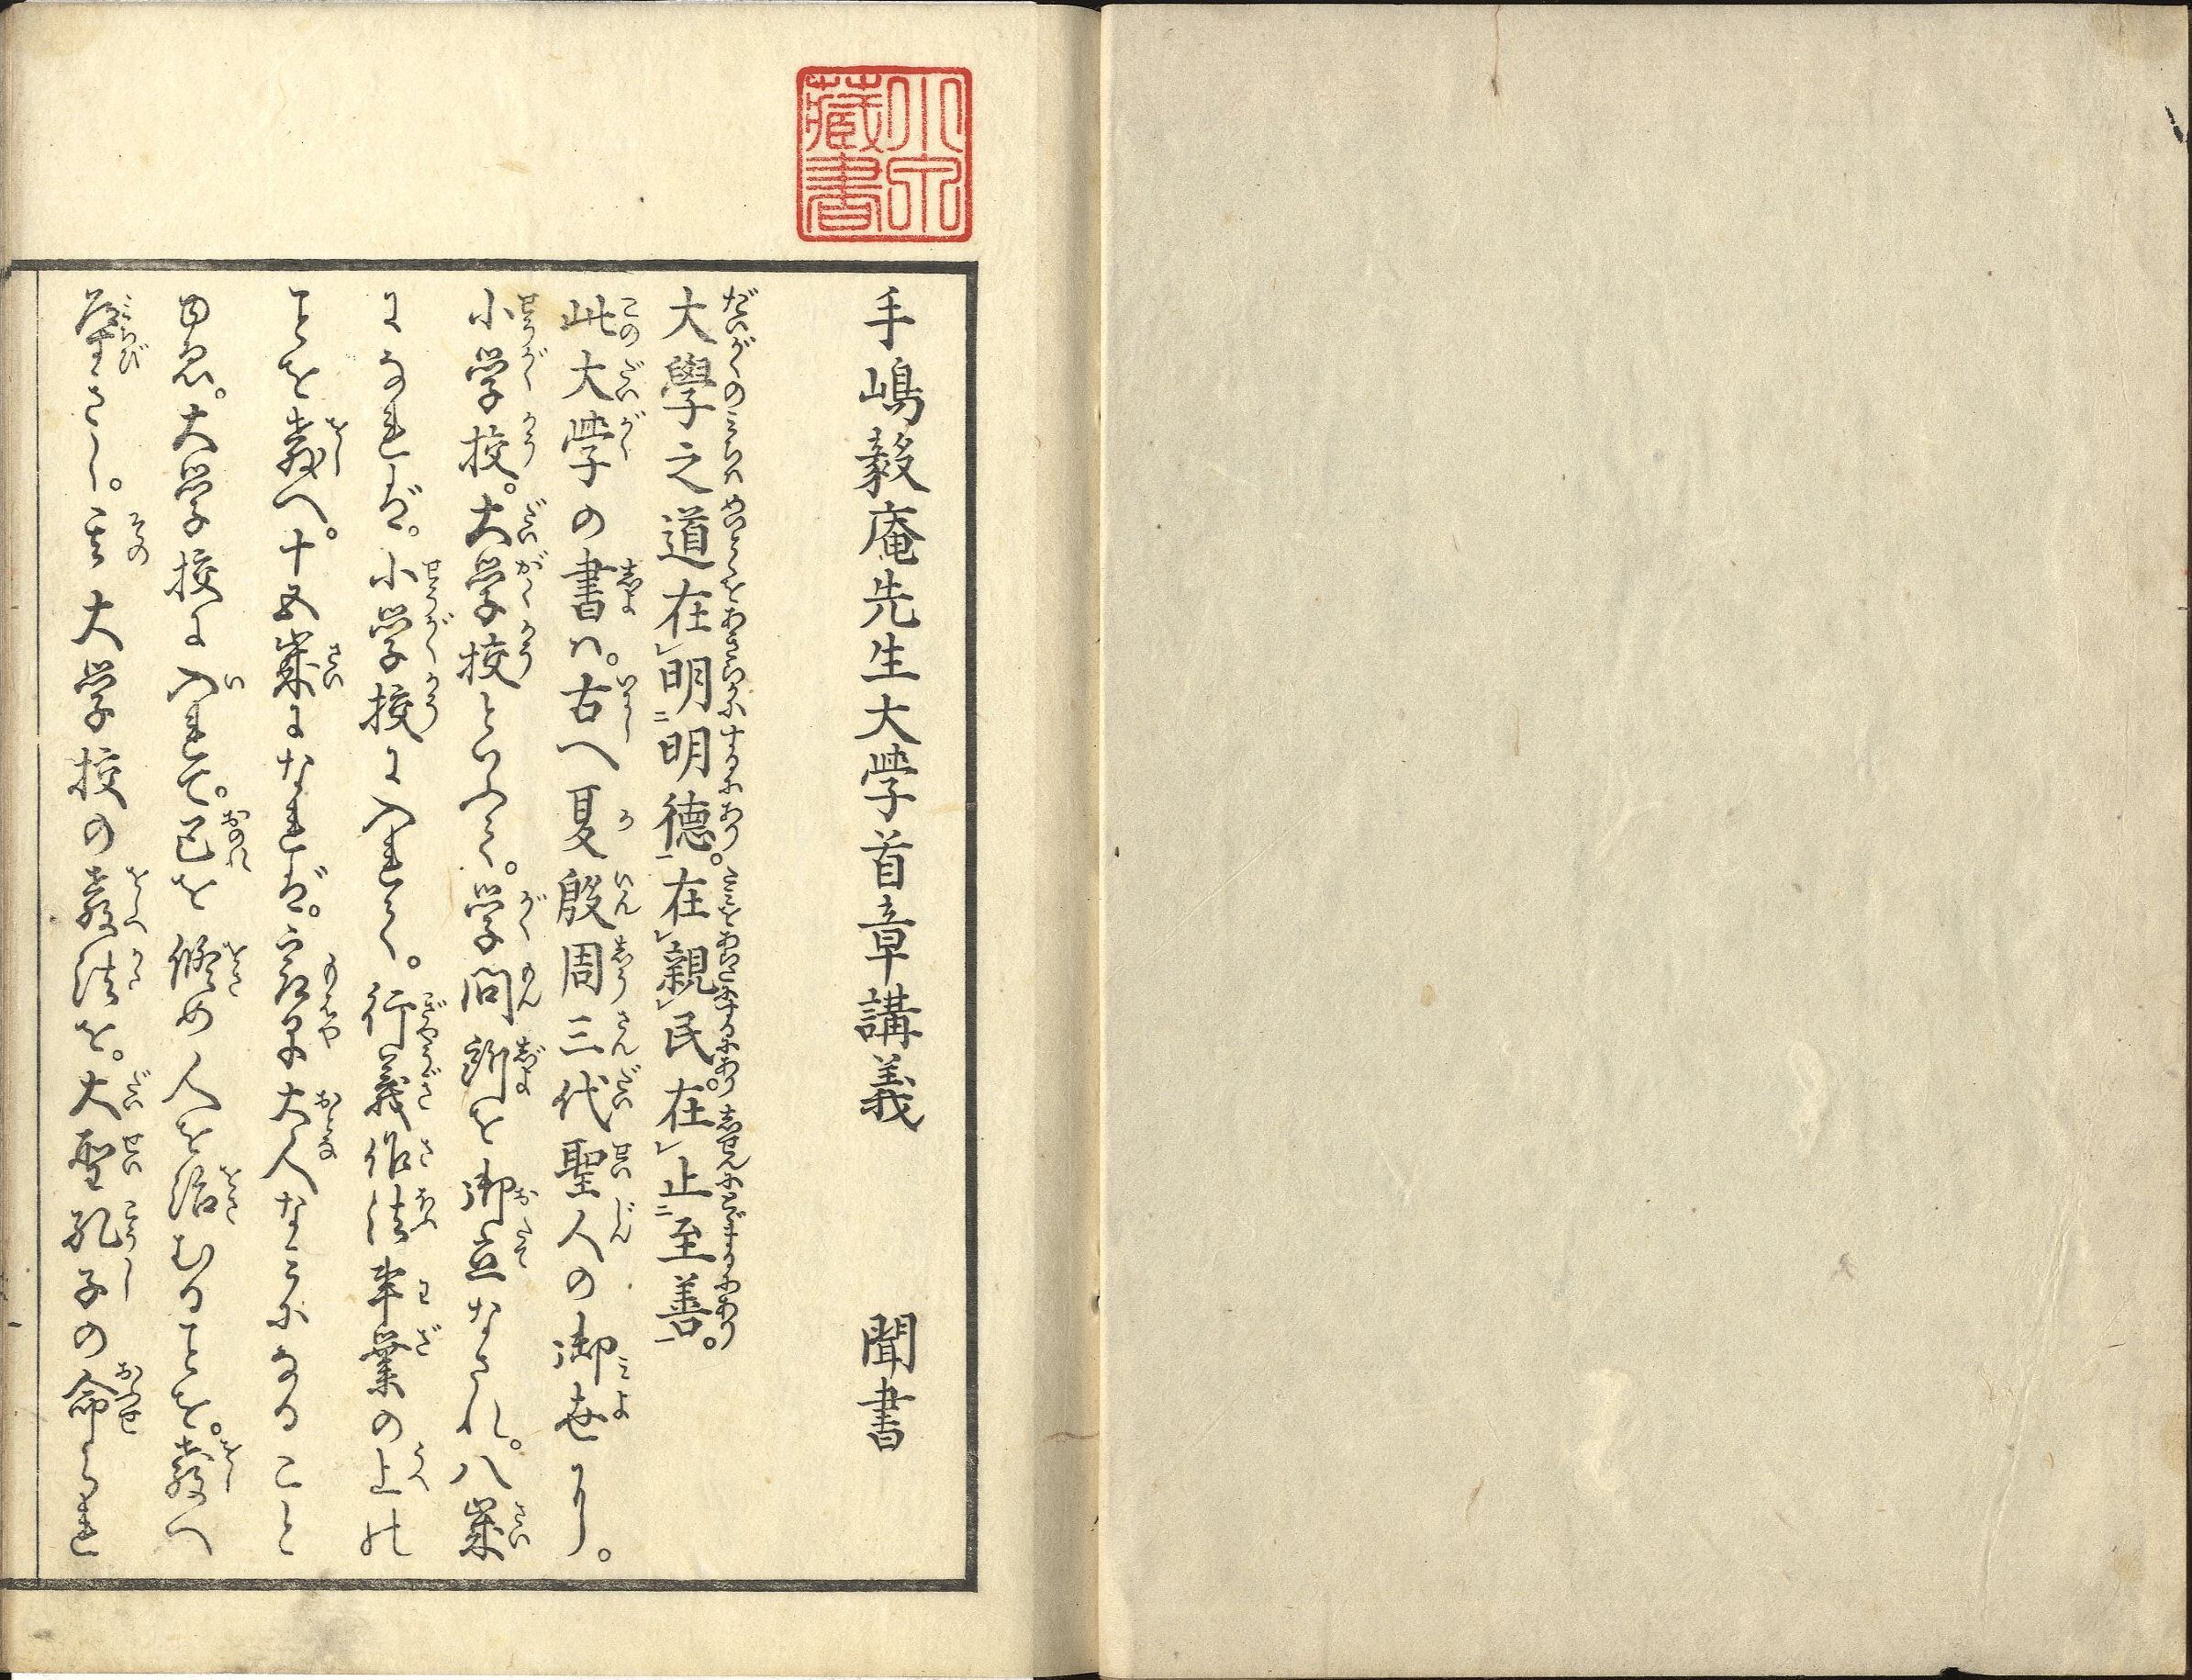 手嶋毅庵先生大學首章講義 聞書
大學之道在明明德。在親民。在止至善。
此大学の書ハ。古へ夏殷周三代聖人の御世より。
小学校。大学校といふて。学問所を御立なされ。八歳
になれば。小学校に入れて。行義作法事業の上の
ことを教へ。十五歳になれば。最早大人なミになること
ゆゑ。大学校に入れて。己を修め人を治むることを。教へ
さし。其大学校の教法を。大聖孔子の命られ
小泉
藏書